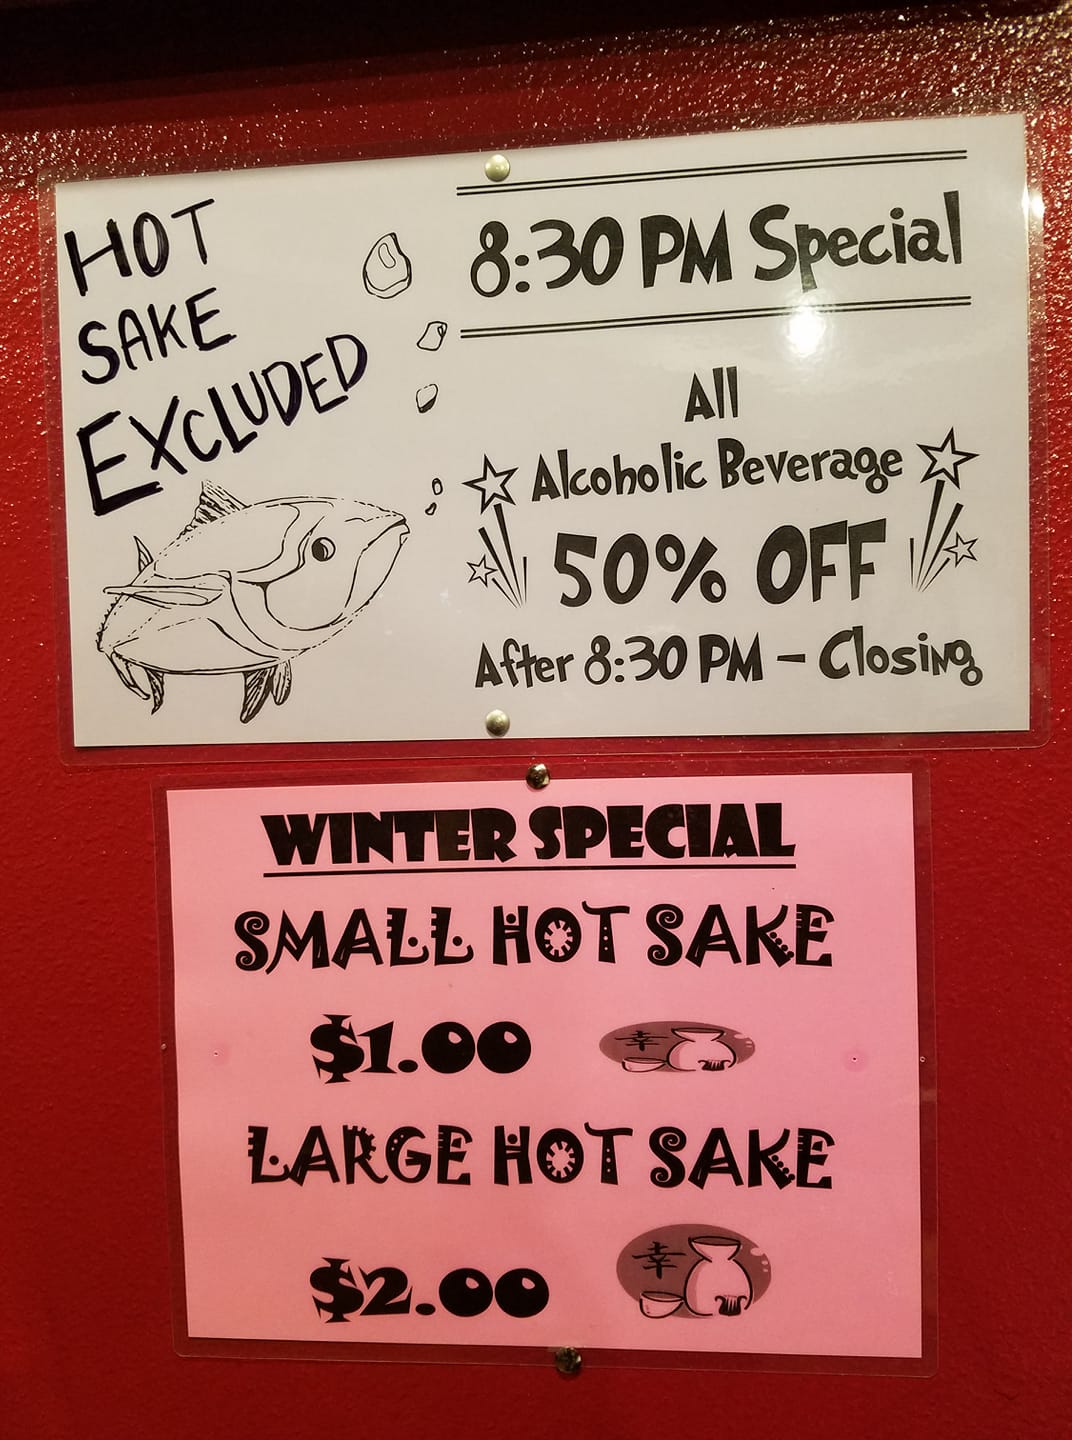 HOT
SAKE
EXCLUDED
8:30 PM Special
All
Alcoholic Beverage
50% OFF
After 8:30 PM – Closing
WINTER SPECIAL
SMALL HOT SAKE
$1.00
幸
LARGE HOT SAKE
$2.00
幸